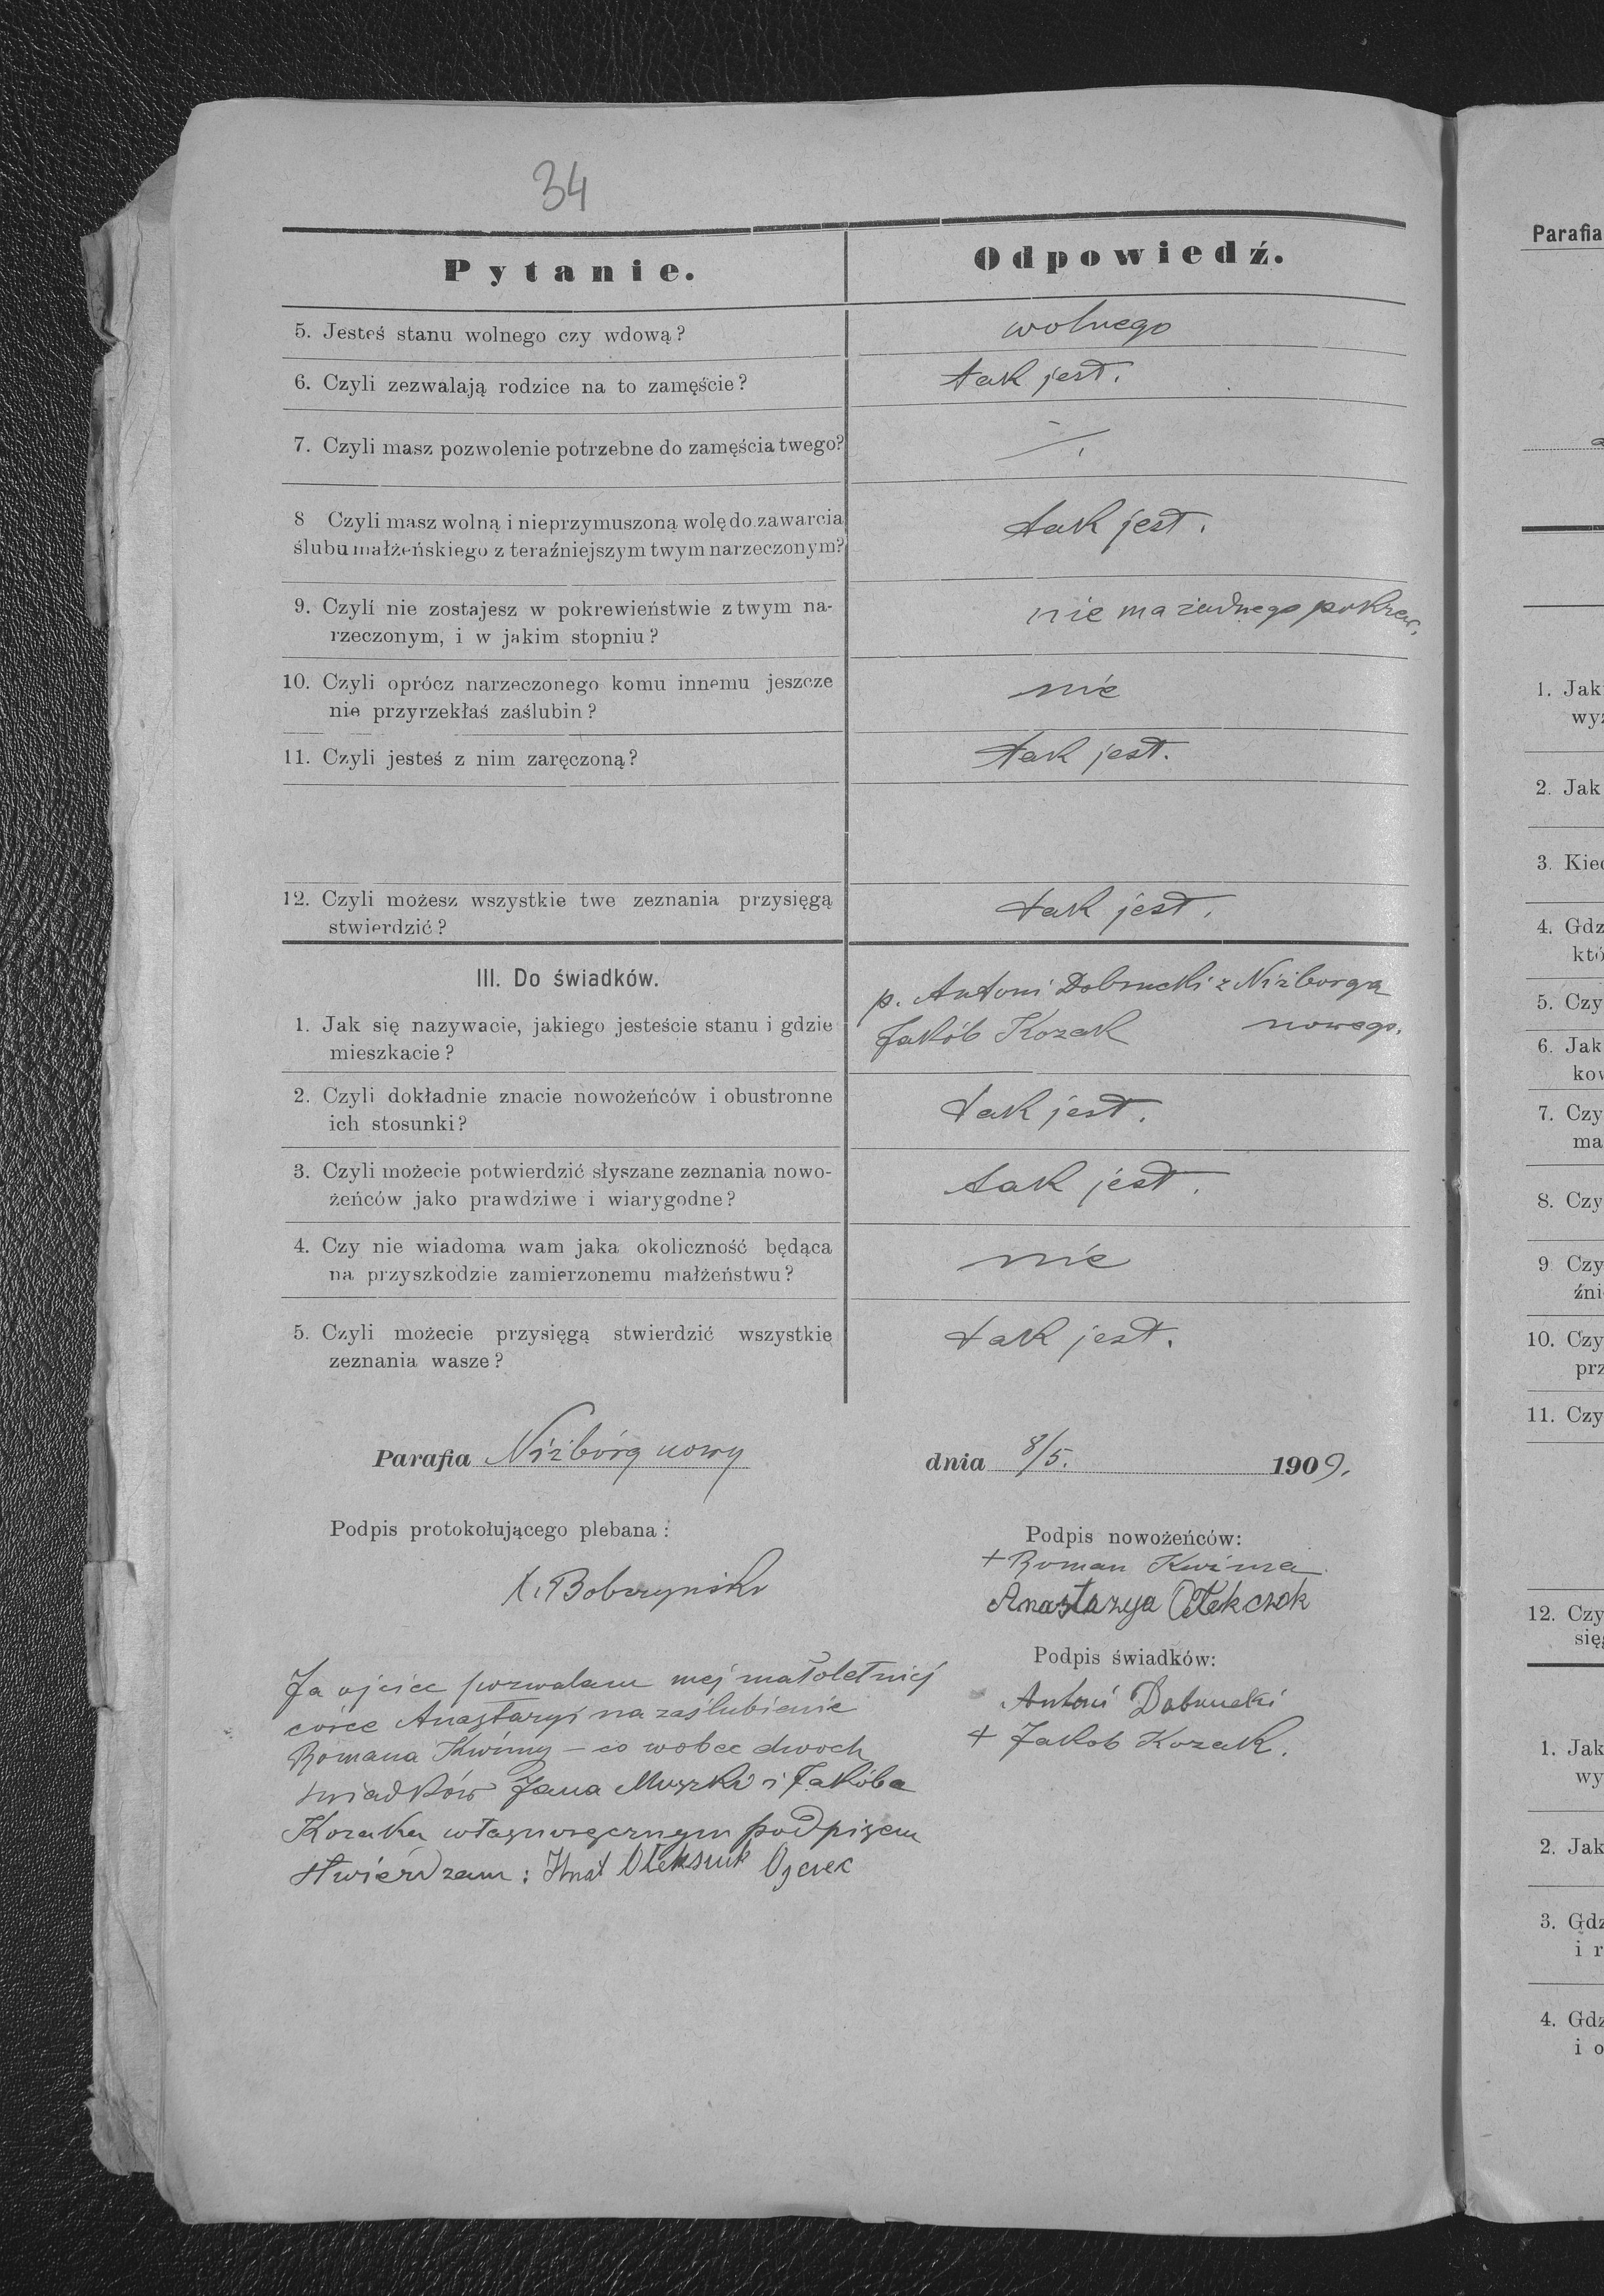 34
Pytanie.
Odpowiedź.
5. Jesteś stanu wolnego czy wdową?
wolnego
6. Czyli zezwalają rodzice na to zamęście?
tak jest.
7. Czyli masz pozwolenie potrzebne do zamęścia twego?
8 Czyli masz wolną i nieprzymuszoną wolę do zawarcia
ślubu małżeńskiego z teraźniejszym twym narzeczonym?
tak jest.
9. Czyli nie zostajesz w pokrewieństwie z twym na-
rzeczonym, i w jakim stopniu?
nie ma żadnego pokrew.
10. Czyli oprócz narzeczonego komu innemu jeszcze
nie przyrzekłaś zaślubin?
nie
11. Czyli jesteś z nim zaręczoną?
tak jest.
12. Czyli możesz wszystkie twe zeznania przysięgą
stwierdzić?
tak jest.
III. Do świadków.
1. Jak się nazywacie, jakiego jesteście stanu i gdzie
mieszkacie?
p. Antoni Dobrucki z Niżborga
Jakób Kozak nowego.
2. Czyli dokładnie znacie nowożeńców i obustronne
ich stosunki?
tak jest.
3. Czyli możecie potwierdzić słyszane zeznania nowo-
żeńców jako prawdziwe i wiarygodne?
tak jest.
4. Czy nie wiadoma wam jaka okoliczność będąca
na przyszkodzie zamierzonemu małżeństwu?
nie
5. Czyli możecie przysięgą stwierdzić wszystkie
zeznania wasze?
tak jest.
Parafia Niżbórg nowy
dnia 8/5. 1909.
Podpis protokołującego plebana:
Podpis nowożeńców:
+ Roman
Anastazya
Podpis świadków:
Antoni Dobrucki
+ Jakob Kozak.
Ja ojciec pozwalam mej małoletniej
córce Anastazyi na zaślubienie
Romana Kwiny – co wobec dwoch
świadków Jana Muszki i Jakóba
Kozaka własnoręcznym podpisem
stwierdzam: Hnat Oleksiuk Ojciec
Parafia
1. Jak
wyz
2. Jak
3. Kied
4. Gdz
któ
5. Czy
6. Jak
kow
7. Czy
ma
8. Czy
9 Czy
źni
10. Czy
prz
11. Czy
12. Czy
się
1. Jak
wy
2. Jak
3. Gdz
i r
4. Gdz
i o